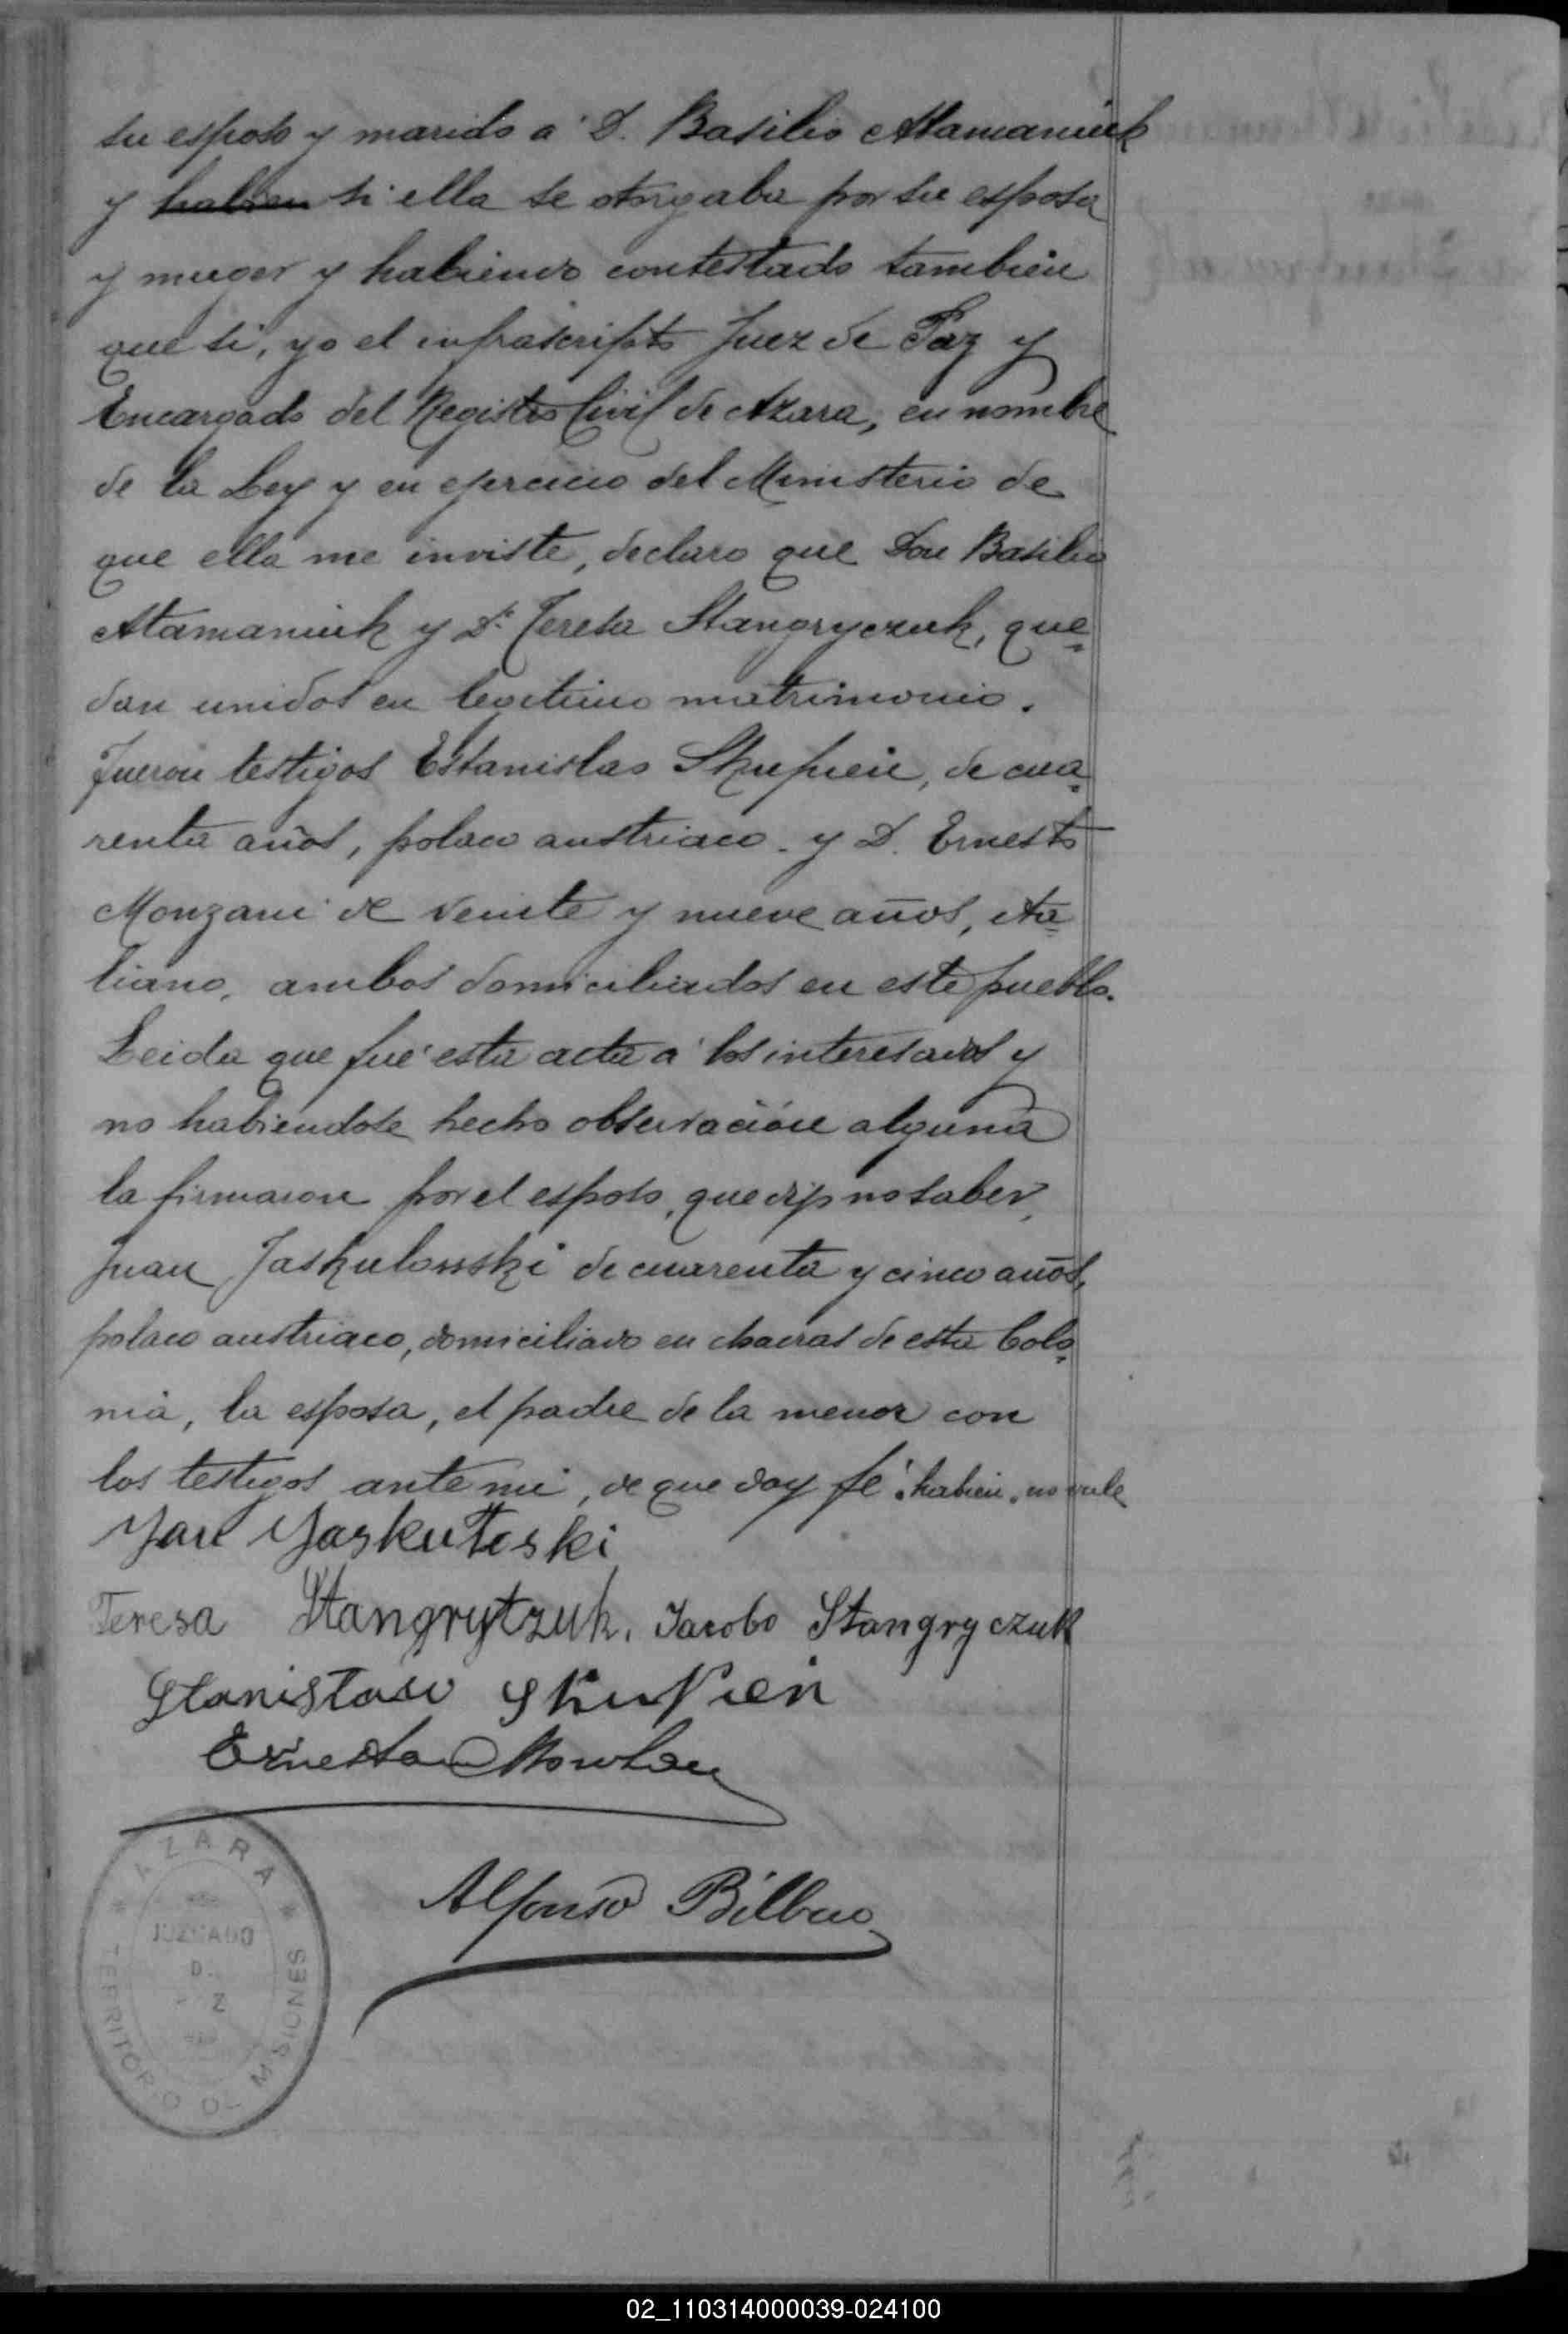 su esposo y marido a D. Basilio Atamaniuk
y habien si ella se otorgaba por su esposa
y muger y habiendo contestado también
que si, yo el infrascripto Juez de Paz y
Encargado del Registro Civil de Azara, en nombre
de la Ley y en ejercicio del Ministerio de
que ella me inviste, declaro que Don Basilio
Atamaniuk y Da. Teresa Stangryczuk, que=
dan unidos en legitimo matrimonio.
Fueron testigos Estanislao Skupien, de cua=
renta años, polaco austriaco. y D. Ernesto
Monzani de veinte y nueve años, ita=
liano, ambos domiciliados en este pueblo.
Leida que fué esta acta a los interesados y
no habiendose hecho observación alguna
la firmaron por el esposo, que dijo no saber,
Juan Jaskulowski de cuarenta y cinco años,
polaco austriaco, domiciliado en chacras de esta Colo=
nia, la esposa, el padre de la menor con
los testigos ante mi, de que doy fé. habien. no vale
Jan Jaskuloski
Teresa Stangrytzuk. Jacobo Stangryczuk
Stanisław Skupien
Ernesto
Alfonso Bilbao
AZARA
JUZGADO
D.
Z
TERRITORIO D MISIONES
02_110314000039-024100